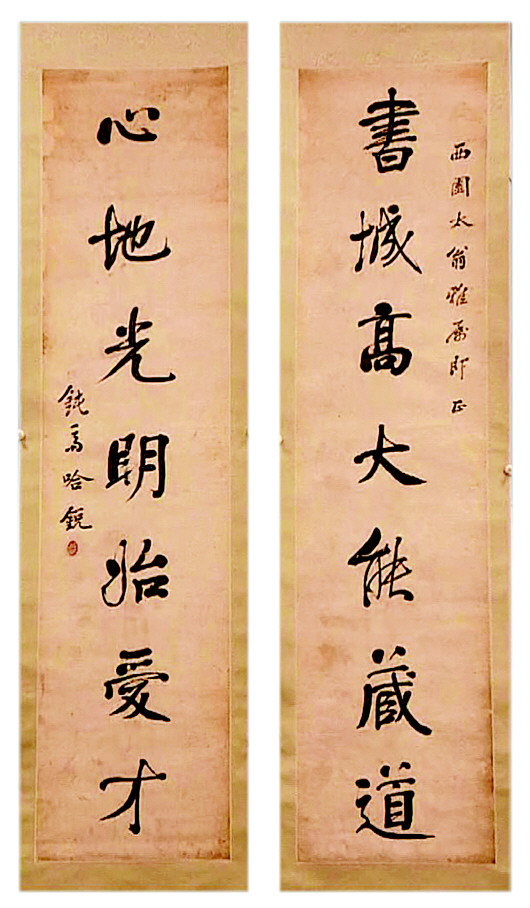 書城高大能藏道
西園太翁雅屬即正
心地光明始愛才
鈍哈銳